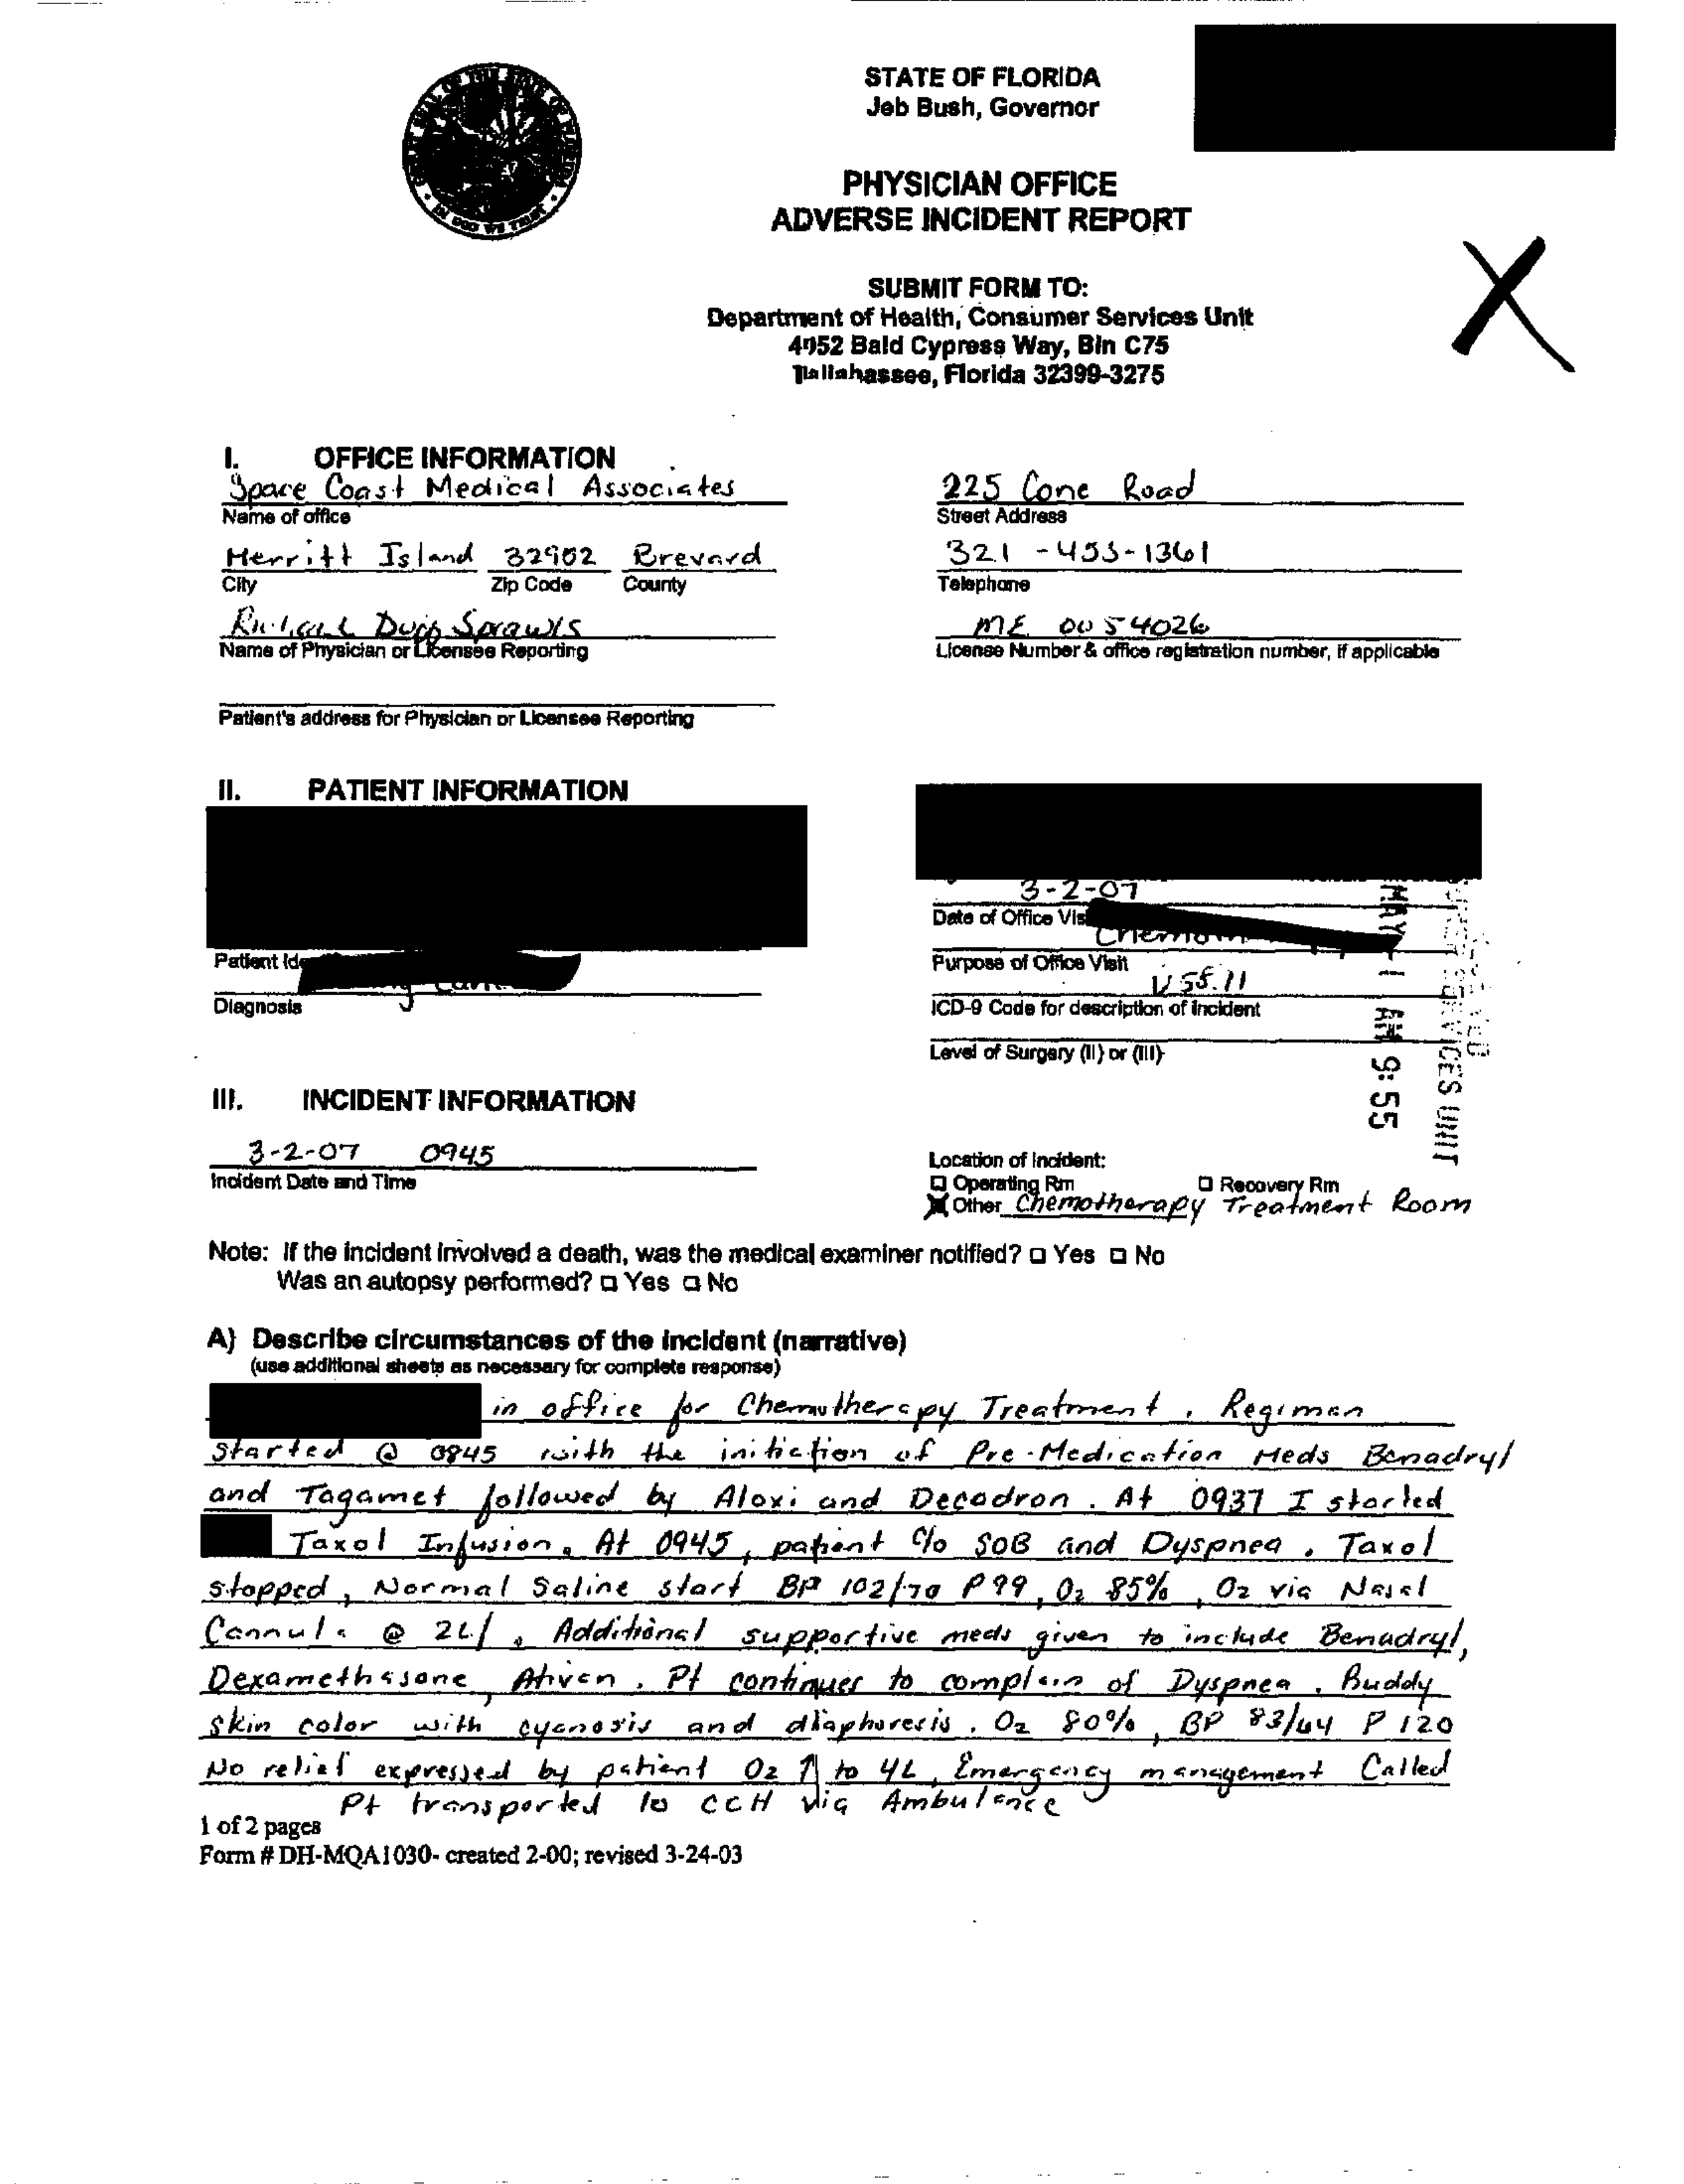 STATE OF FLORIDA
Jeb Bush, Governor
PHYSICIAN OFFICE
ADVERSE INCIDENT REPORT
SUBMIT FORM TO:
Department of Health, Consumer Services Unit
4052 Bald Cypress Way, Bin C75
Tallahassee, Florida 32399-3275
I. OFFICE INFORMATION
Space Coast Medical Associates
Name of office
225 Cone Road
Street Address
Merritt Island 32902 Brevard
City Zip Code County
321-453-1361
Telephone
Sprawls
Name of Physician or Licensee Reporting
ME 0054026
License Number & office registration number, if applicable
Patient's address for Physician or Licensee Reporting
II. PATIENT INFORMATION
3-2-07
Date of Office
Patient
Purpose of Office Visit
Diagnosis
V58.11
ICD-9 Code for description of incident
Level of Surgery (II) or (III)
MAY 1 AM 9:55
UNIT
III. INCIDENT INFORMATION
3-2-07 0945
Incident Date and Time
Location of Incident:
Operating Rm Recovery Rm
Other Chemotherapy Treatment Room
Note: If the incident involved a death, was the medical examiner notified? Yes No
Was an autopsy performed? Yes No
A) Describe circumstances of the incident (narrative)
(use additional sheets as necessary for complete response)
in office for Chemotherapy Treatment. Regimen
started @ 0845 with the initiation of Pre-Medication Meds Benadryl
and Tagamet followed by Aloxi and Decadron. At 0937 I started
Taxol Infusion. At 0945, patient c/o SOB and Dyspnea. Taxol
stopped, Normal Saline start BP 102/70 P 99, O2 85%, O2 via Nasal
Cannula @ 2L/. Additional supportive meds given to include Benadryl,
Dexamethasone, Ativan. Pt continues to complain of Dyspnea. Buddy
skin color with cyanosis and diaphoresis. O2 80%, BP 83/64 P 120
No relief expressed by patient O2 ↑ to 4L, Emergency management Called
Pt transported to CCH via Ambulance
1 of 2 pages
Form # DH-MQA1030- created 2-00; revised 3-24-03